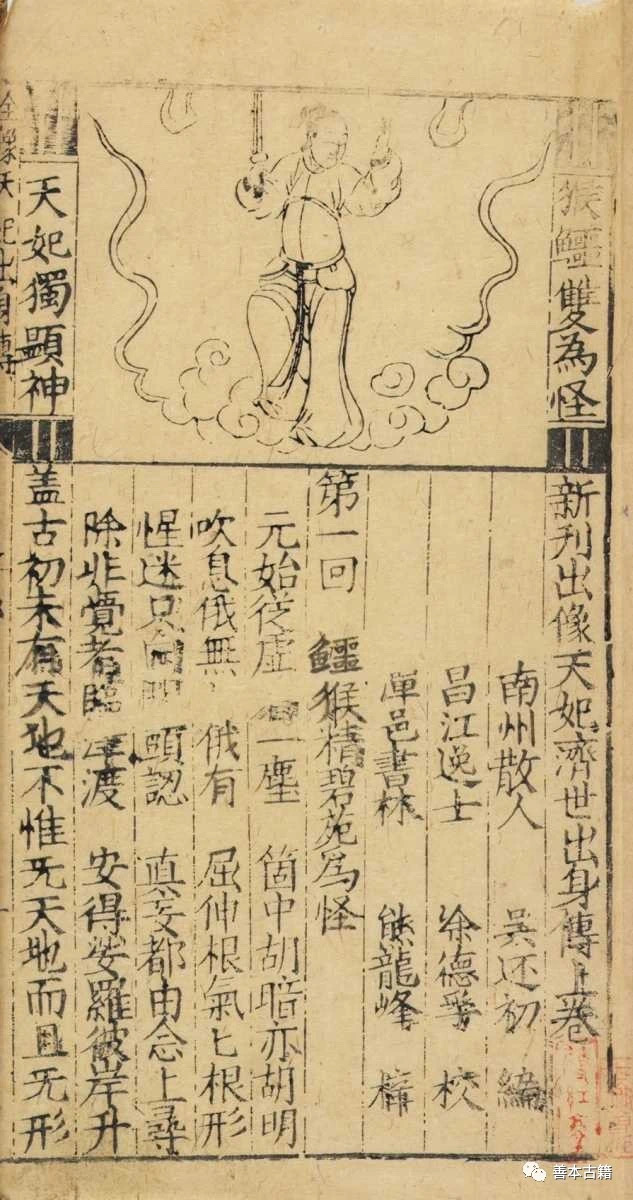 猴鱷雙為怪
天妃獨顯神
新刊出像天妃濟世出身傳上卷
南州散人 吳还初 編
昌江逸士 徐德孚 校
潭邑書林 熊龍峰 梓
第一回 鱷猴精碧苑為怪
元始從虛 一塵 箇中胡暗亦胡明
吹息俄無 俄有 屈伸根氣匕根形
惺迷只向 頭認 真妄都由念上尋
除非覺者臨津渡 安得娑羅彼岸升
盖古初未有天地不惟无天地而且无形
全像天妃出身傳
善本古籍